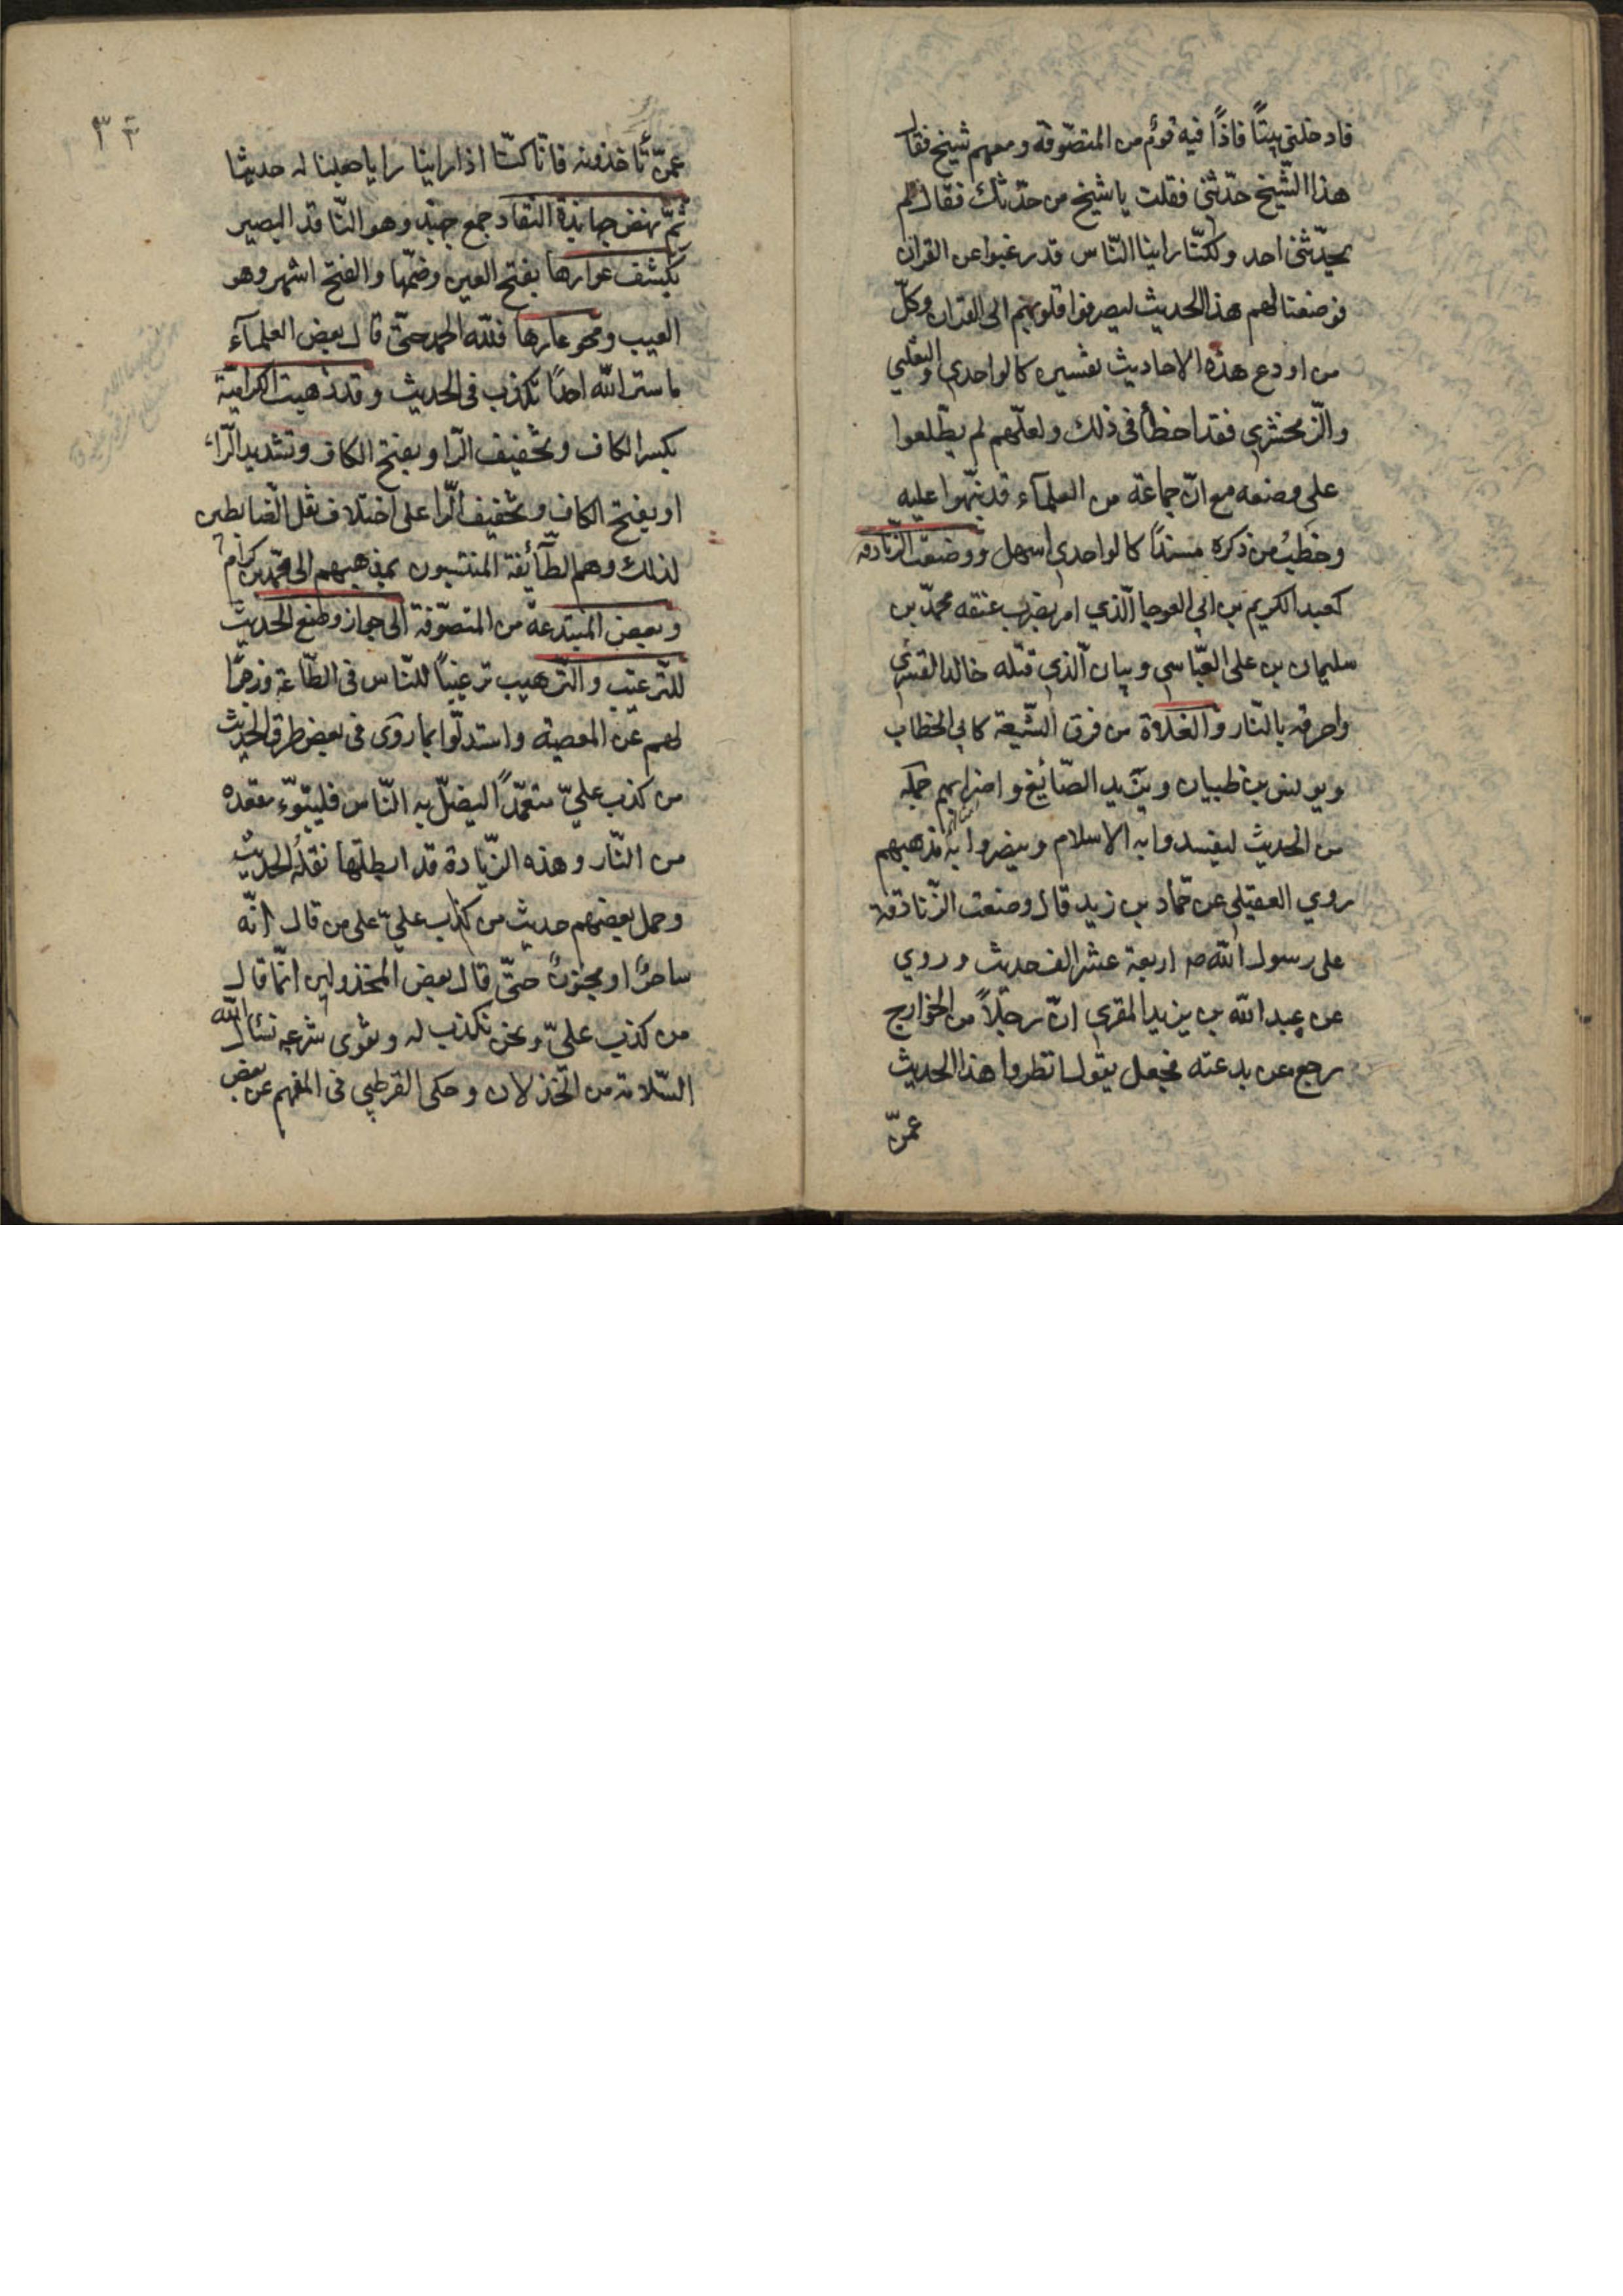 فادخلني بيتًا فاذًا فيه قوم من المتصوّفة ومعهم شيخ فقال
هذا الشّيخ حدّثني فقلت يا شيخ من حدّثك فقال لم
يحدّثني احد ولكنّا راينا النّاس قد رغبوا عن القران
فوضعنا لهم هذا الحديث ليصرفوا قلوبهم الى القران وكلّ
من اودع هذه الاحاديث تفسيره كالواحدي والثعلبي
والزّمخشري فقد اخطأ في ذلك ولعلّهم لم يطّلعوا
على وضعه مع انّ جماعة من العلمآء قد نبّهوا عليه
وخطب من ذكره مسندًا كالواحدي اسهل ووضعت الزّنادقه
كعبد الكريم بن ابي العوجا الّذي امر بضرب عنقه محمّد بن
سليمان بن على العبّاسي وبيان الّذي قتله خالد القسري
واحرقه بالنّار والغلاة من فرق الشّيعة كابي الخطاب
ويونس بن ظبيان ويزيد الصّائيغ واضرابهم جملة
من الحديث ليفسدوا به الاسلام وينصروا به مذهبهم
روي العقيلي عن حمّاد بن زيد قال وضعت الزّنادقة
على رسول الله صم اربعة عشر الف حديث وروي
عن عبد الله بن يزيد المقري انّ رجلاً من الخوارج
رجع عن بدعته فجعل يقول انظروا هذا الحديث
عمّن
٣٣
عمّن تأخذونه فانّا كنّا اذا راينا رايا جعلنا له حديثا
ثمّ نهض جهابذة النّقاد جمع جهبذ وهو النّاقد البصير
بكشف عوارها بفتح العين وضمّها والفتح اشهر وهو
العيب ومحو عارها فللّه الحمد حتّى قال بعض العلمآء
ما ستر الله احدًا يكذب في الحديث وقد ذهبت الكراميّة
بكسر الكاف وتخفيف الرّا وبفتح الكاف وتشديد الرّاء
او بفتح الكاف وتخفيف الرّا على اختلاف نقل الضّابطين
لذلك وهم الطّآئفة المنتسبون بمذهبهم الى محمّد بن كرام
وبعض المبتدعة من المتصوّفة الى جواز وضع الحديث
للتّرغيب والتّرهيب ترغيبًا للنّاس في الطّاعة وزجرًا
لهم عن المعصية واستدلّوا بما روى في بعض طرق الحديث
من كذب عليّ متعمّدًا ليضلّ به النّاس فليتبوّء مقعده
من النّار وهذه الزّيادة قد ابطلها نقلة الحديث
وحمل بعضهم حديث من كذب عليّ على من قال انّه
ساحرٌ او مجنونٌ حتّى قال بعض المخذولين انّما قال
من كذب عليّ ونحن نكذب له ونقوى شرعه نسئال الله
السّلامة من الخذلان وحكى القرطبي في المفهم عن بعض